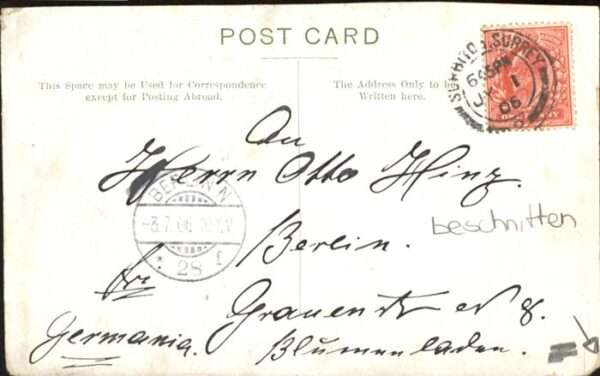 POST CARD
This Space may be Used for Correspondence
except for Posting Abroad.
The Address Only to be
Written here.
SURBITON. SURREY
645PM
JY 1
06
BERLIN N
-3.7.06
* 28 f
An
Herrn Otto Hinz.
beschnitten
Berlin.
Germania.
Blumenladen.